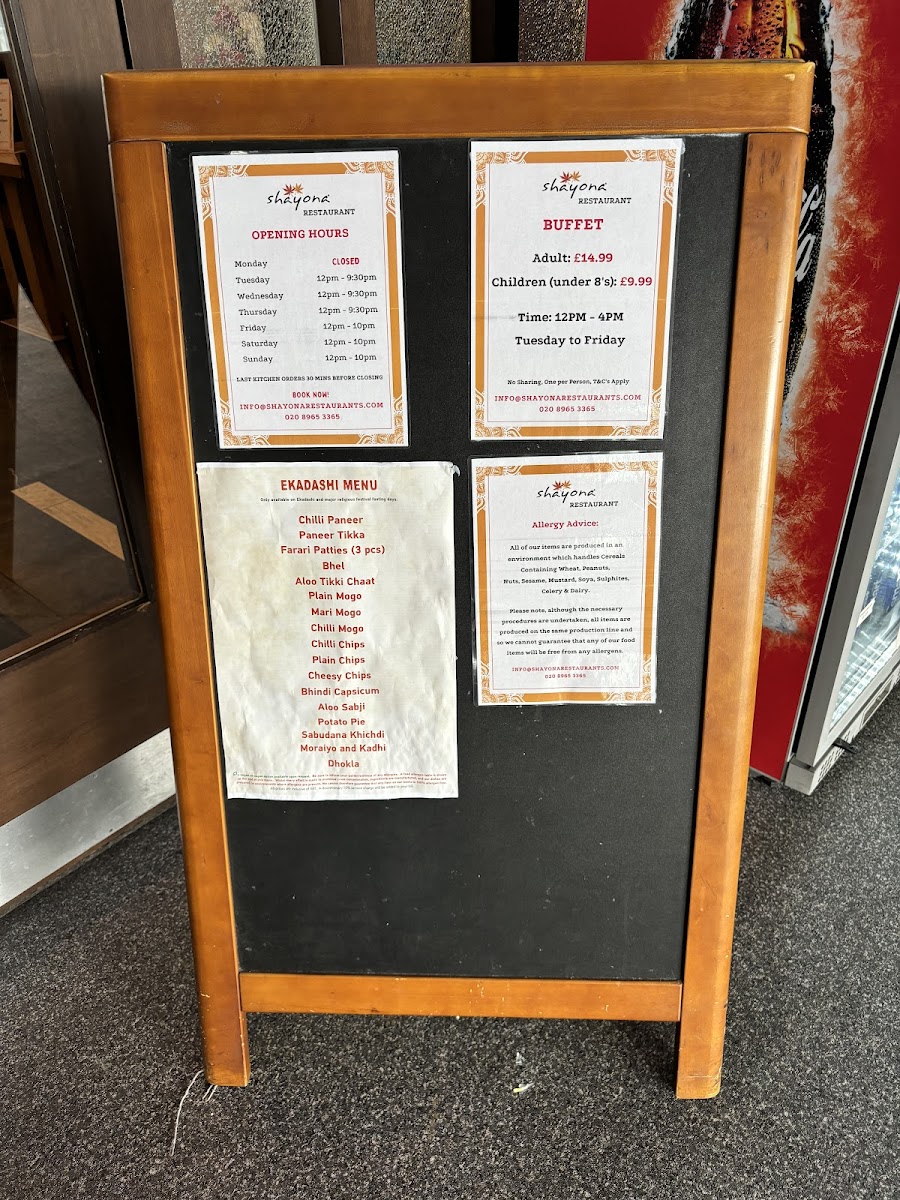 shayona
RESTAURANT
OPENING HOURS
Monday CLOSED
Tuesday 12pm - 9:30pm
Wednesday 12pm - 9:30pm
Thursday 12pm - 9:30pm
Friday 12pm - 10pm
Saturday 12pm - 10pm
Sunday 12pm - 10pm
LAST KITCHEN ORDERS 30 MINS BEFORE CLOSING
BOOK NOW!
INFO@SHAYONARESTAURANTS.COM
020 8965 3365
shayona
RESTAURANT
BUFFET
Adult: £14.99
Children (under 8's): £9.99
Time: 12PM - 4PM
Tuesday to Friday
No Sharing, One per Person, T&C's Apply
INFO@SHAYONARESTAURANTS.COM
020 8965 3365
EKADASHI MENU
Only available on Ekadashi and major religious festival fasting days.
Chilli Paneer
Paneer Tikka
Farari Patties (3 pcs)
Bhel
Aloo Tikki Chaat
Plain Mogo
Mari Mogo
Chilli Mogo
Chilli Chips
Plain Chips
Cheesy Chips
Bhindi Capsicum
Aloo Sabji
Potato Pie
Sabudana Khichdi
Moraiyo and Kadhi
Dhokla
shayona
RESTAURANT
Allergy Advice:
All of our items are produced in an
environment which handles Cereals
Containing Wheat, Peanuts,
Nuts, Sesame, Mustard, Soya, Sulphites,
Celery & Dairy.
Please note, although the necessary
procedures are undertaken, all items are
produced on the same production line and
so we cannot guarantee that any of our food
items will be free from any allergens.
INFO@SHAYONARESTAURANTS.COM
020 8965 3365